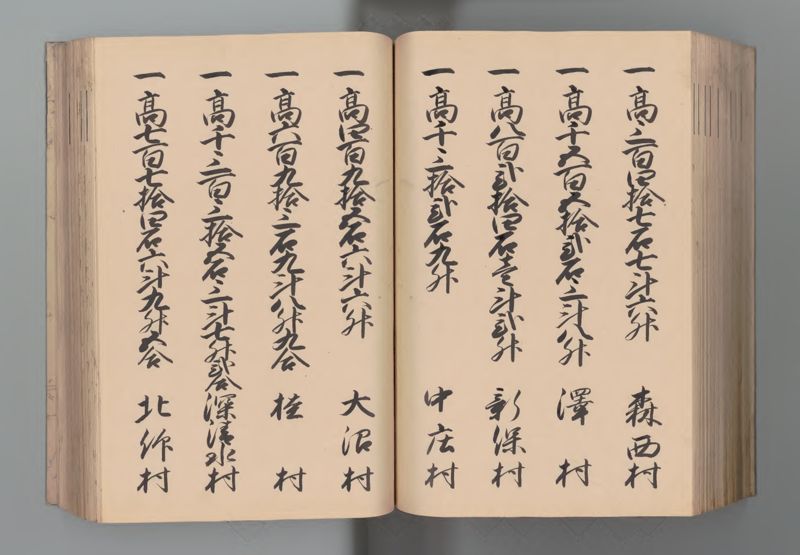 一高三百四拾七石七斗六升 森西村
一高千五百五拾弐石三斗八升 澤村
一高八百弐拾四石壱斗弐升 新保村
一高千三拾弐石九升 中庄村
一高四百九拾五石六斗六升 大沼村
一高六百九拾三石九斗八升九合 桂村
一高千三百三拾五石三斗七升弐合 深清水村
一高七百七拾四石六斗九升五合 北仰村